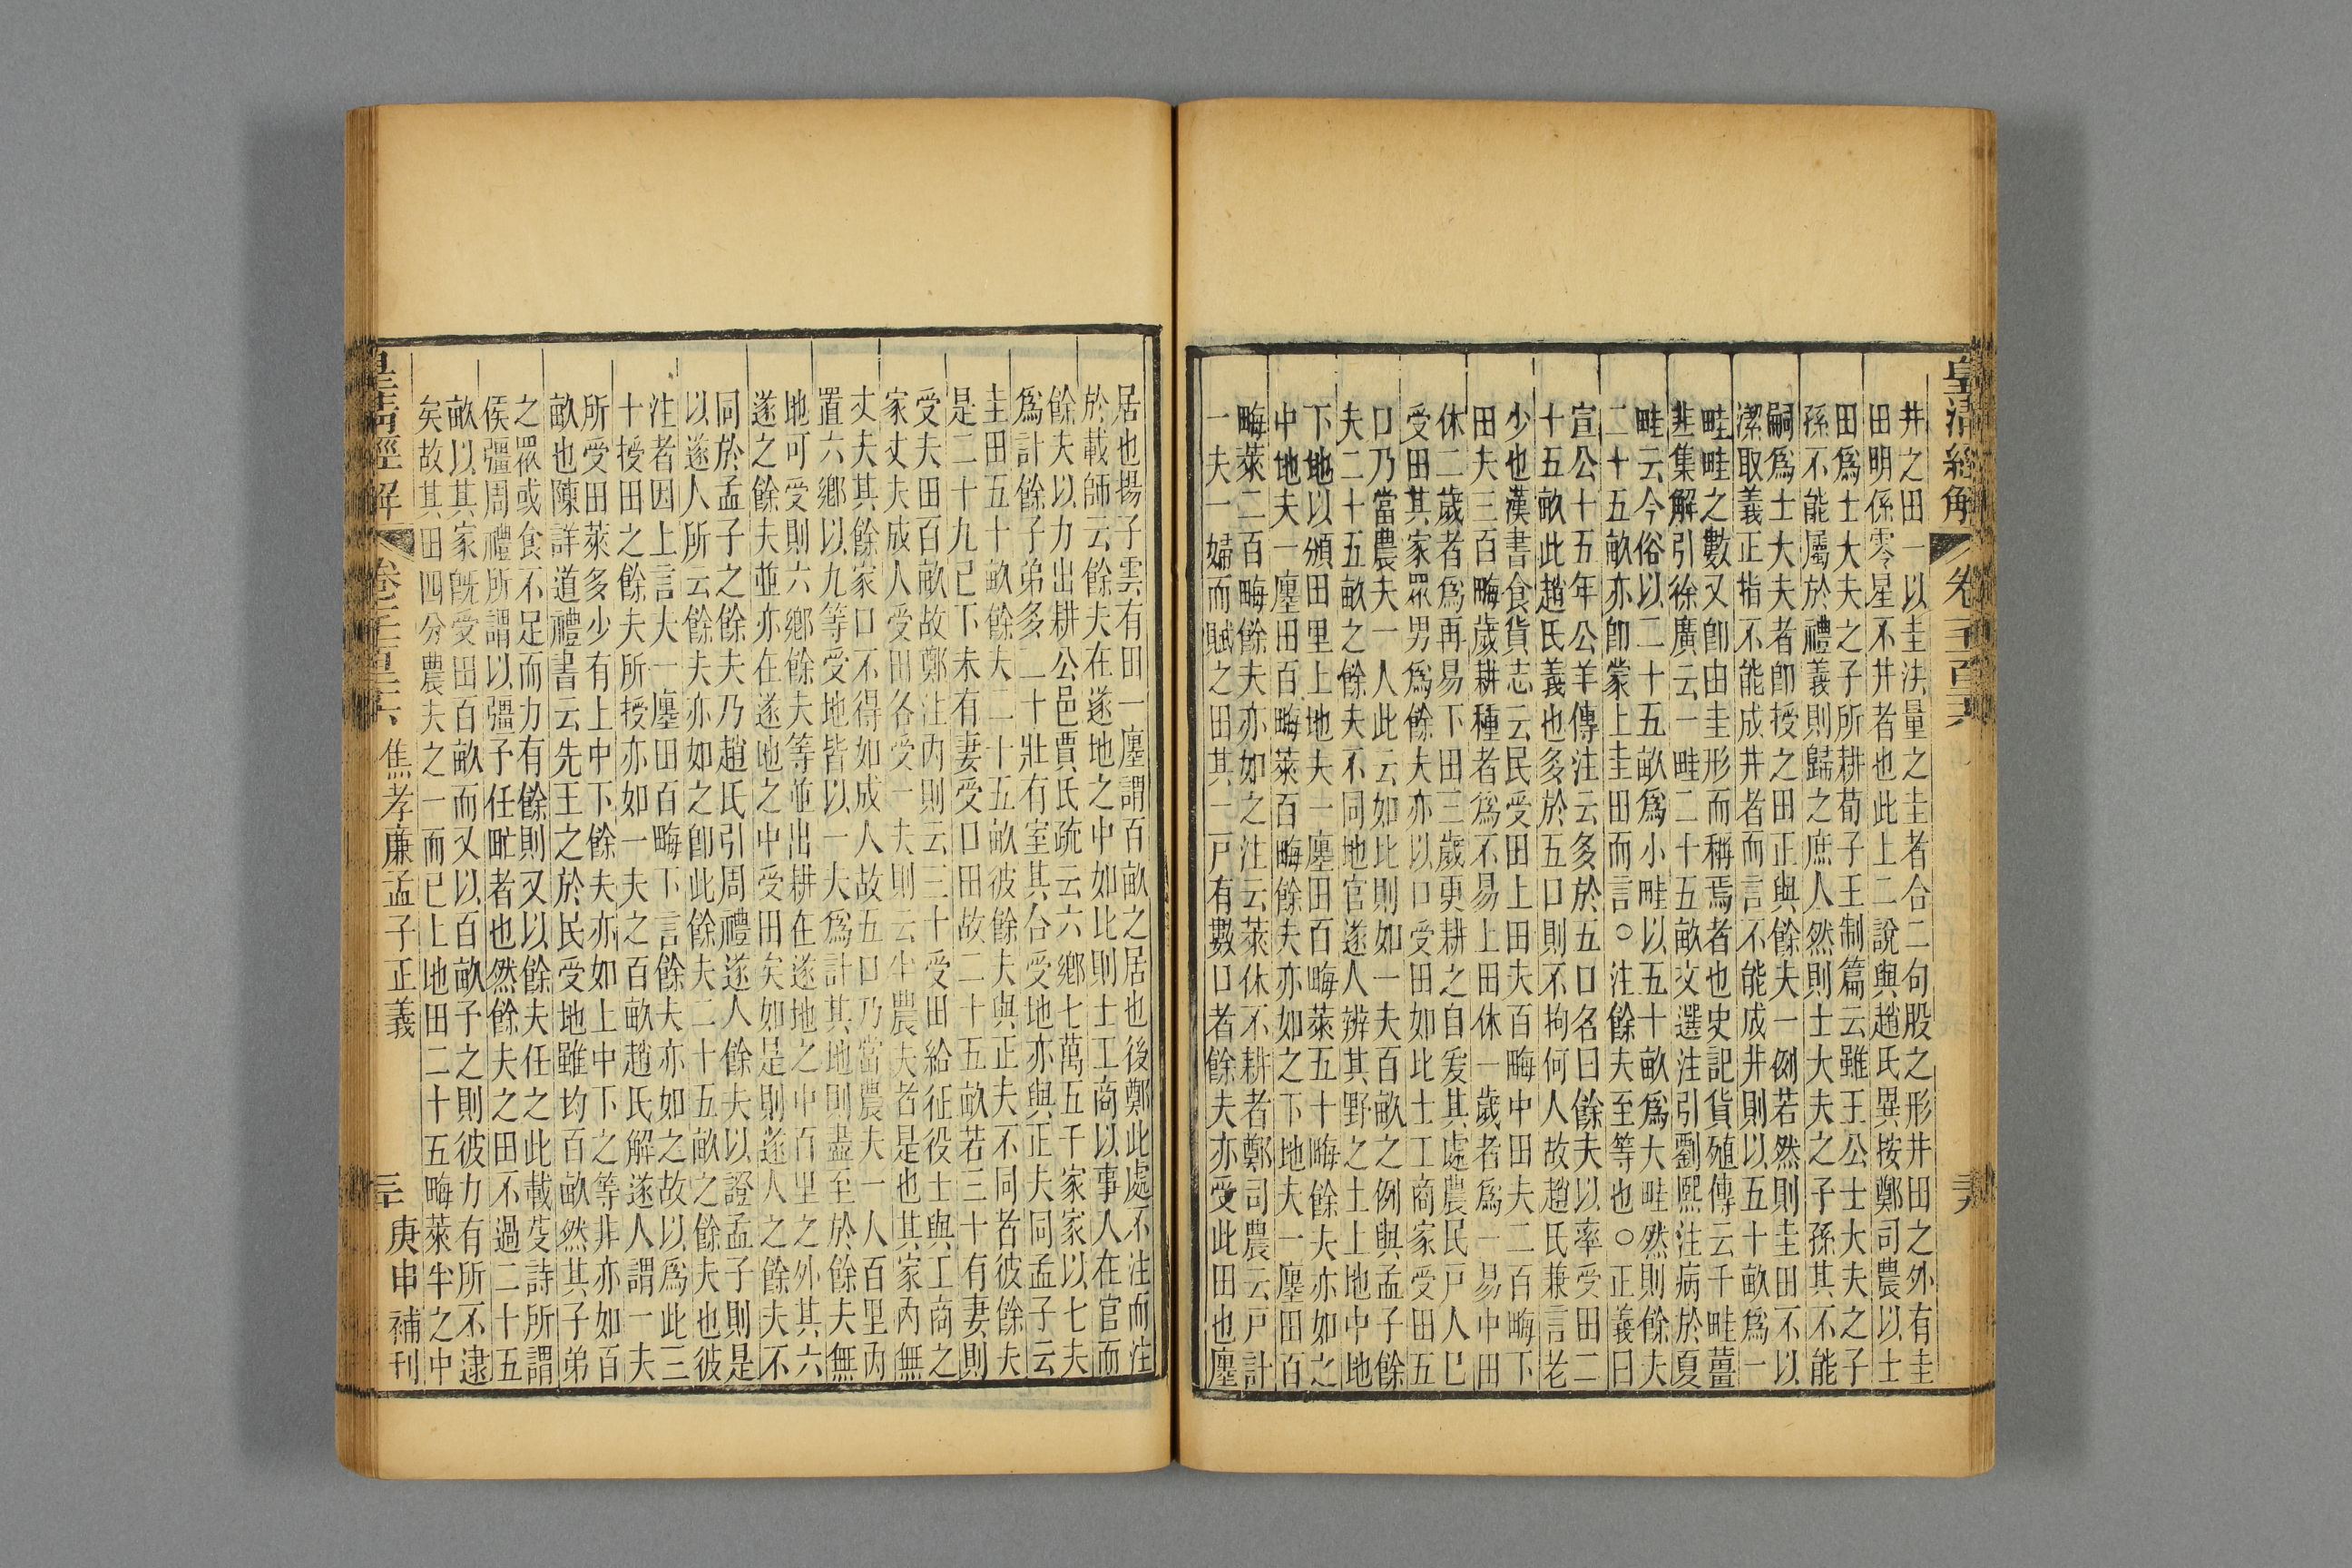 皇清經解 卷一千一百二十六 三九
井之田一以圭法量之圭者合二句股之形井田之外有圭
田明係零星不井者也此上二說與趙氏異按鄭司農以士
田爲士大夫之子所耕荀子王制篇云雖王公士大夫之子
孫不能屬於禮義則歸之庶人然則士大夫之子孫其不能
嗣爲士大夫者卽授之田正與餘夫一例若然則圭田不以
潔取義正指不能成井者而言不能成井則以五十畝爲一
畦畦之數又卽由圭形而稱焉者也史記貨殖傳云千畦薑
韭集解引徐廣云一畦二十五畝文選注引劉熙注病於夏
畦云今俗以二十五畝爲小畦以五十畝爲大畦然則餘夫
二十五畝亦卽蒙上圭田而言○注餘夫至等也○正義曰
宣公十五年公羊傳注云多於五口名曰餘夫以率受田二
十五畝此趙氏義也多於五口則不拘何人故趙氏兼言老
少也漢書食貨志云民受田上田夫百畮中田夫二百畮下
田夫三百畮歲耕種者爲不易上田休一歲者爲一易中田
休二歲者爲再易下田三歲更耕之自爰其處農民戶人已
受田其家眾男爲餘夫亦以口受田如比士工商家受田五
口乃當農夫一人此云如比則如一夫百畝之例與孟子餘
夫二十五畝之餘夫不同地官遂人辨其野之土上地中地
下地以頒田里上地夫一廛田百畮萊五十畮餘夫亦如之
中地夫一廛田百畮萊百畮餘夫亦如之下地夫一廛田百
畮萊二百畮餘夫亦如之注云萊休不耕者鄭司農云戶計
一夫一婦而賦之田其一戶有數口者餘夫亦受此田也廛
居也揚子雲有田一廛謂百畝之居也後鄭此處不注而注
於載師云餘夫在遂地之中如比則士工商以事人在官而
餘夫以力出耕公邑賈氏疏云六鄉七萬五千家家以七夫
爲計餘子弟多二十壯有室其合受地亦與正夫同孟子云
圭田五十畝餘夫二十五畝彼餘夫與正夫不同者彼餘夫
是二十九已下未有妻受口田故二十五畝若三十有妻則
受夫田百畝故鄭注內則云三十受田給征役士與工商之
家丈夫成人受田各受一夫則云半農夫者是也其家內無
丈夫其餘家口不得如成人故五口乃當農夫一人百里內
置六鄉以九等受地皆以一夫爲計其地則盡至於餘夫無
地可受則六鄉餘夫等並出耕在遂地之中百里之外其六
遂之餘夫並亦在遂地之中受田矣如是則遂人之餘夫不
同於孟子之餘夫乃趙氏引周禮遂人餘夫以證孟子則是
以遂人所云餘夫亦如之卽此餘夫二十五畝之餘夫也彼
注者因上言夫一廛田百畮下言餘夫亦如之故以爲此三
十授田之餘夫所授亦如一夫之百畝趙氏解遂人謂一夫
所受田萊多少有上中下餘夫亦如上中下之等非亦如百
畝也陳詳道禮書云先王之於民受地雖均百畝然其子弟
之眾或食不足而力有餘則又以餘夫任之此載芟詩所謂
侯彊周禮所謂以彊予任甿者也然餘夫之田不過二十五
畝以其家旣受田百畝而又以百畝予之則彼力有所不逮
矣故其田四分農夫之一而已上地田二十五畮萊半之中
皇清經解 卷一千一百二十六 焦孝廉孟子正義 三十 庚申補刊